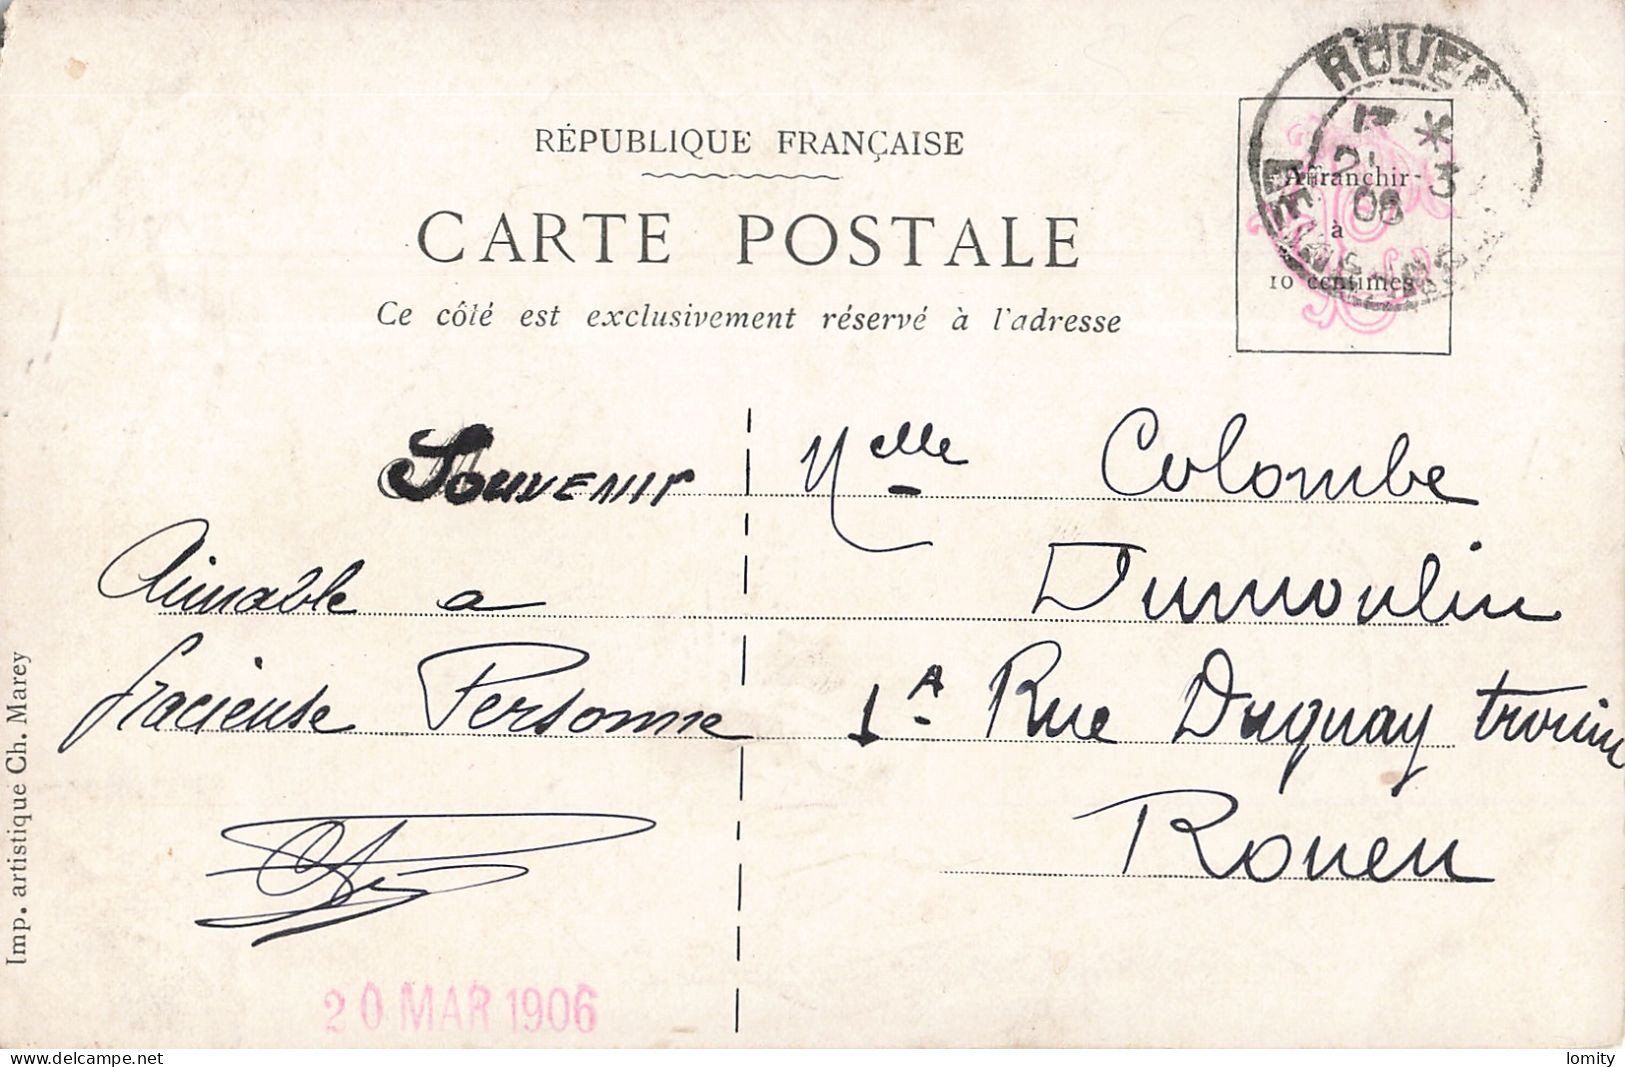 RÉPUBLIQUE FRANÇAISE
CARTE POSTALE
Ce côté est exclusivement réservé à l'adresse
ROUEN
Affranchir
à
10 centimes
Souvenir
Aimable a
gracieuse Personne
20 MAR 1906
Melle Colombe
Dumoulin
1A Rue Duguay trouin
Rouen
Imp. artistique Ch. Marey
lomity